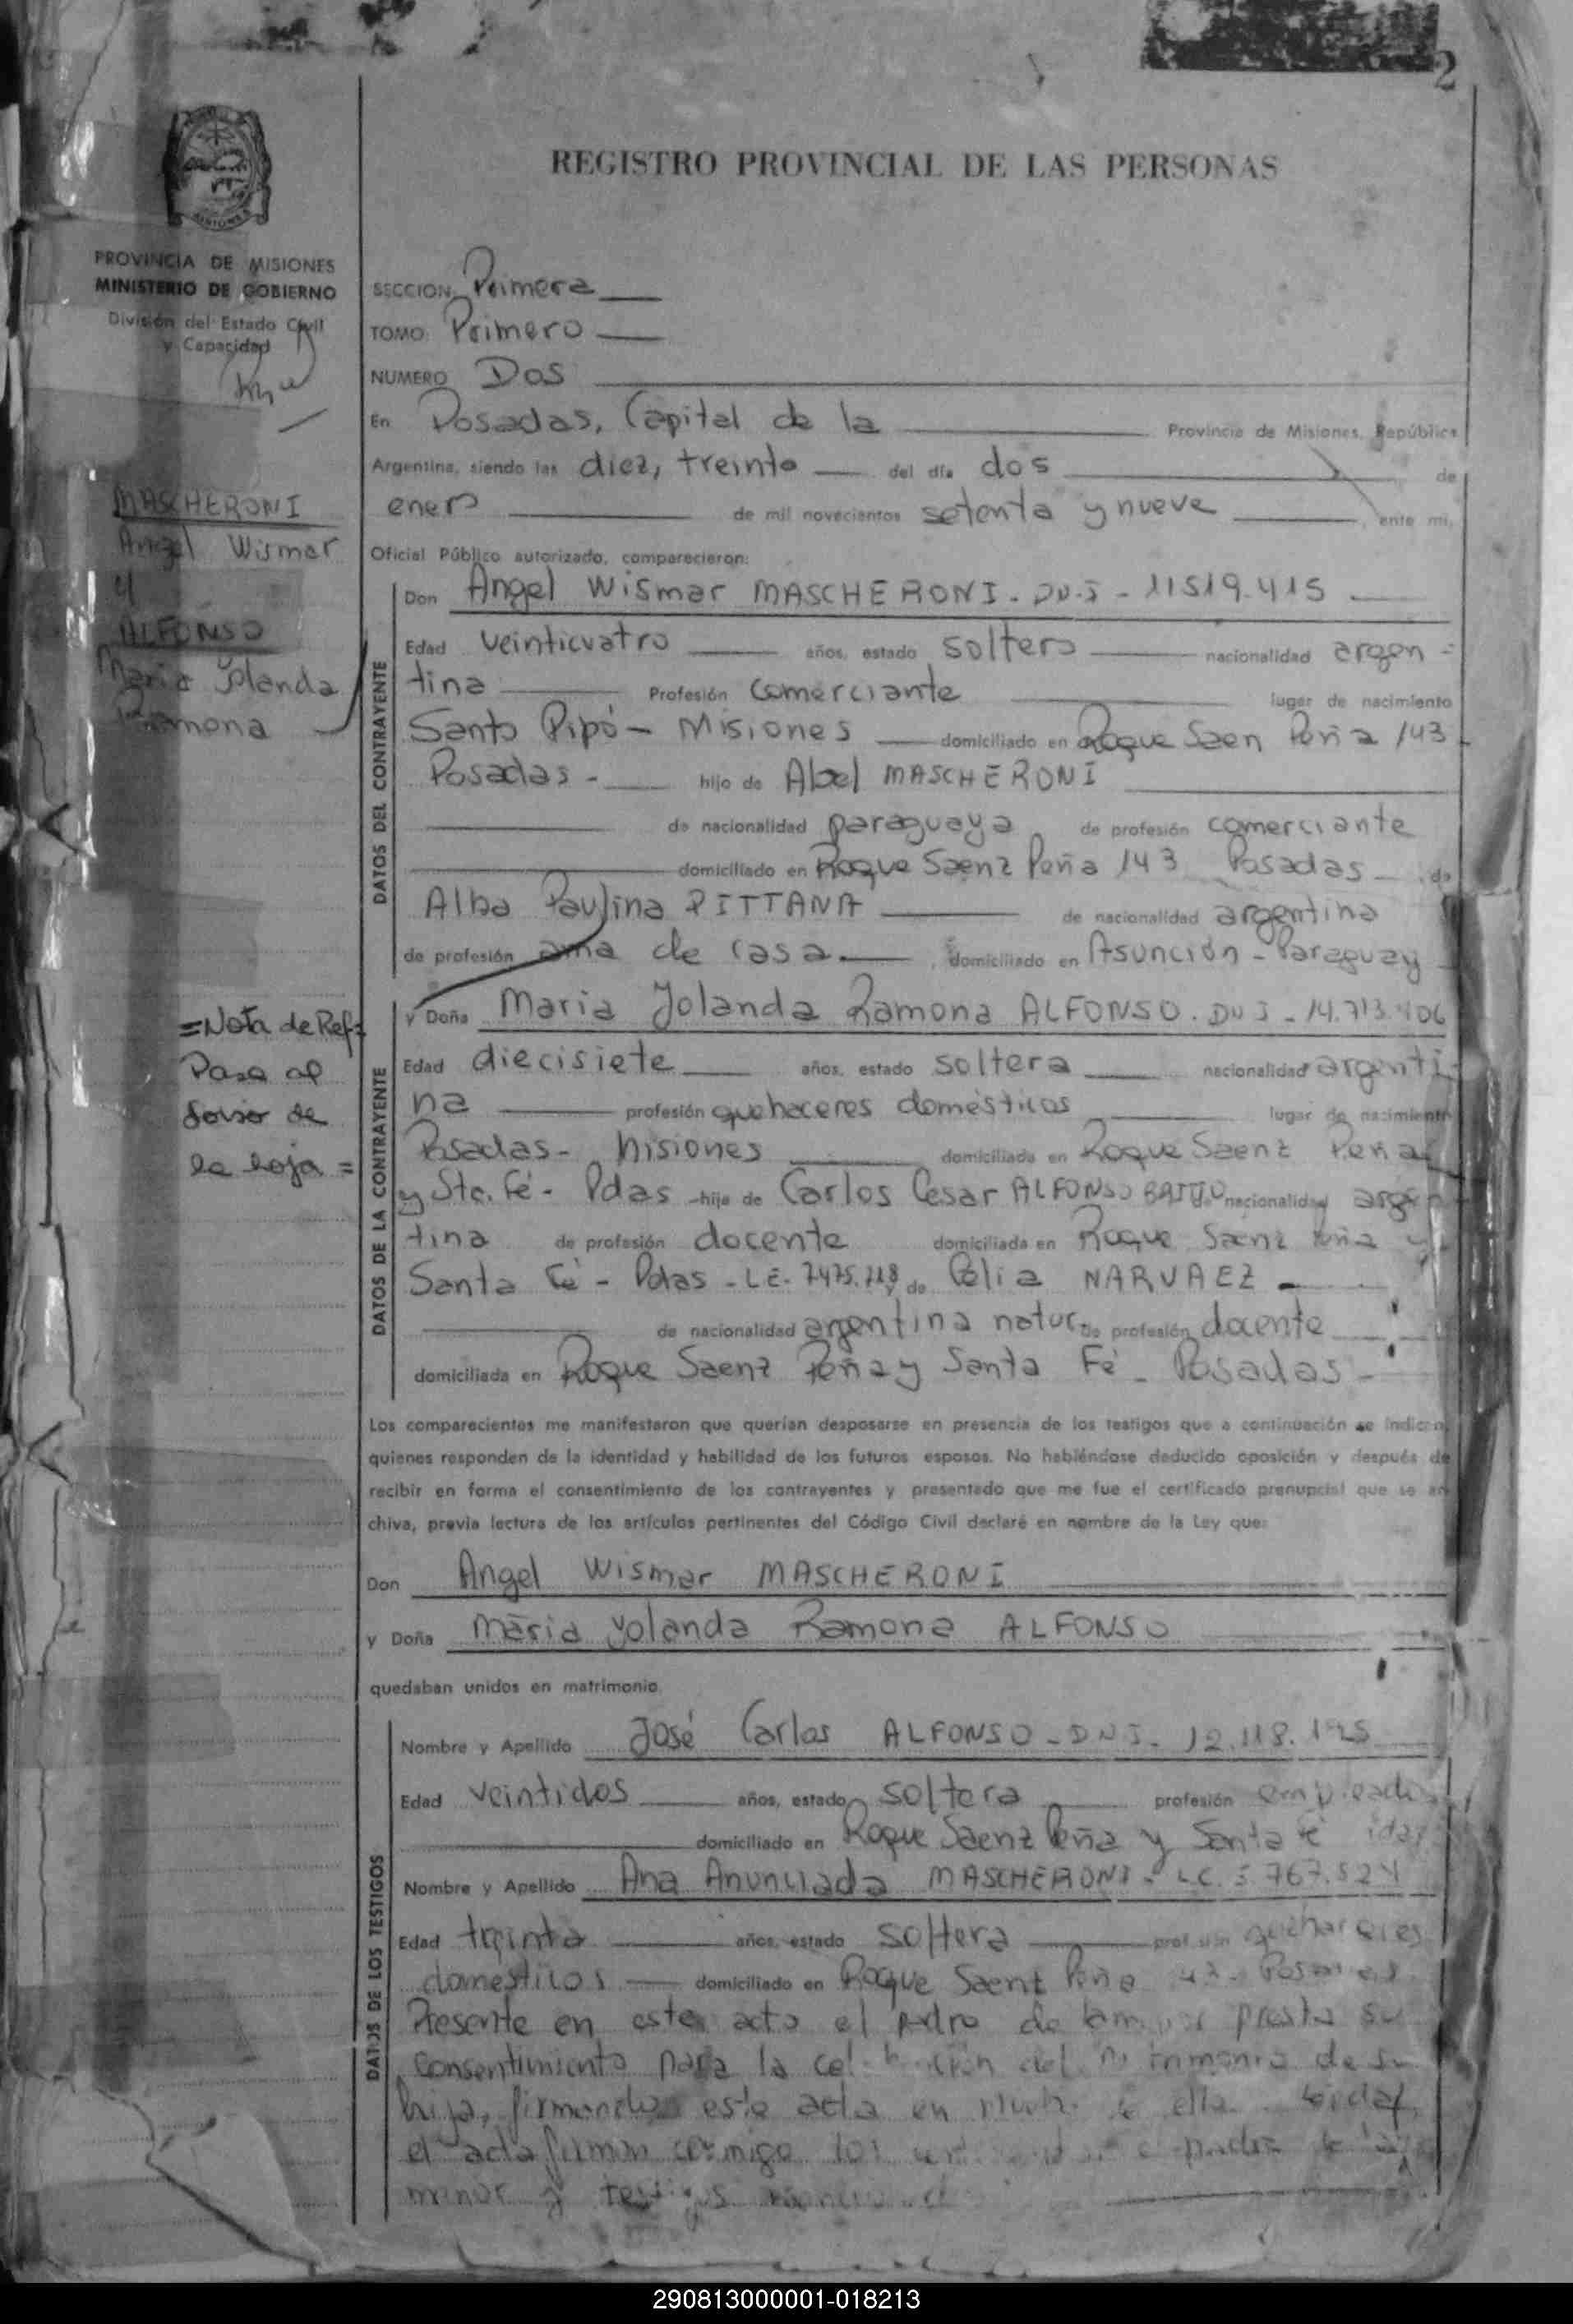 2
REGISTRO PROVINCIAL DE LAS PERSONAS
MISIONES
PROVINCIA DE MISIONES
MINISTERIO DE GOBIERNO
División del Estado Civil
y Capacidad
SECCION Primera
TOMO Primero
NUMERO Dos
En Posadas, Capital de la Provincia de Misiones, República
Argentina, siendo las diez, treinta del día dos de
enero de mil novecientos setenta y nueve, ante mi,
Oficial Público autorizado, comparecieron:
MASCHERONI
Angel Wismar
y
ALFONSO
Maria Yolanda
Ramona
Don Angel Wismar MASCHERONI - DNI - 11519.415
Edad veinticuatro años, estado soltero nacionalidad argen=
tina Profesión comerciante lugar de nacimiento
Santo Pipó - Misiones domiciliado en Roque Saen Peña 143
Posadas - hijo de Abel MASCHERONI
de nacionalidad paraguaya de profesión comerciante
domiciliado en Roque Saenz Peña 143 Posadas
Alba Paulina PITTANA de nacionalidad argentina
de profesión ama de casa, domiciliado en Asunción - Paraguay
DATOS DEL CONTRAYENTE
y Doña Maria Yolanda Ramona ALFONSO. DNI - 14.713.
Edad diecisiete años, estado soltera nacionalidad argenti
na profesión quehaceres domésticos lugar de nacimiento
Posadas - Misiones domiciliada en Roque Saenz Peña
y Sta. Fé - Pdas hija de Carlos Cesar ALFONSO nacionalidad argen
tina de profesión docente domiciliada en Roque Saenz Peña y
Santa Fé - Pdas - LE - 7475. y de Celia NARVAEZ -
de nacionalidad argentina natur. de profesión docente
domiciliada en Roque Saenz Peña y Santa Fé - Posadas -
DATOS DE LA CONTRAYENTE
=Nota de Ref=
Pasa al
dorso de
la hoja =
Los comparecientes me manifestaron que querían desposarse en presencia de los testigos que a continuación se indican
quienes responden de la identidad y habilidad de los futuros esposos. No habiéndose deducido oposición y después de
recibir en forma el consentimiento de los contrayentes y presentado que me fue el certificado prenupcial que se ar
chiva, previa lectura de los artículos pertinentes del Código Civil declaré en nombre de la Ley que:
Don Angel Wismar MASCHERONI
y Doña Maria Yolanda Ramona ALFONSO
quedaban unidos en matrimonio
Nombre y Apellido José Carlos ALFONSO - DNI - 12.118.
Edad veintidos años, estado soltera profesión empleado
domiciliado en Roque Saenz Peña y Santa Fé
Nombre y Apellido Ana Anunciada MASCHERONI - LC.
Edad treinta años, estado soltera profesión quehaceres
domesticos domiciliado en Roque Saenz Peña Posadas
DATOS DE LOS TESTIGOS
Presente en este acto el padre de la menor presta su
consentimiento para la celebración del matrimonio de su
hija, firmando este acta en
el acta firman conmigo los padre de la
menor y testigos
290813000001-018213